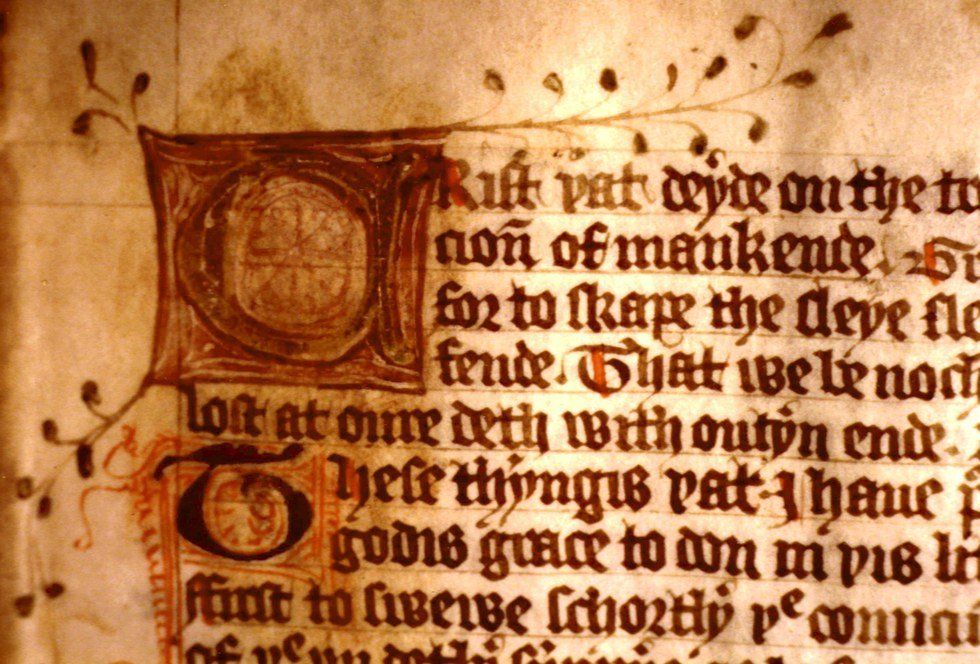 CRist þat deyde on the
cioñ of mankende.
for to skape the sleye
fende. That we be
lost at oure deth with outyn ende.
These thyngis þat I haue
godis grace to don in þis
ffirst to schewe schortly þe
of þe